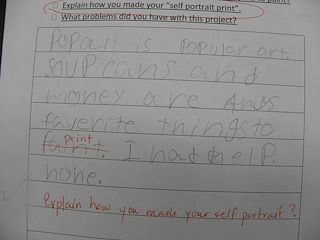 Explain how you made your "self portrait print".
What problems did you have with this project?
Popart is popular art.
soup cans and
money are Andys
favorite things to
print
paint. I had help.
none.
Explain how you made your self portrait?